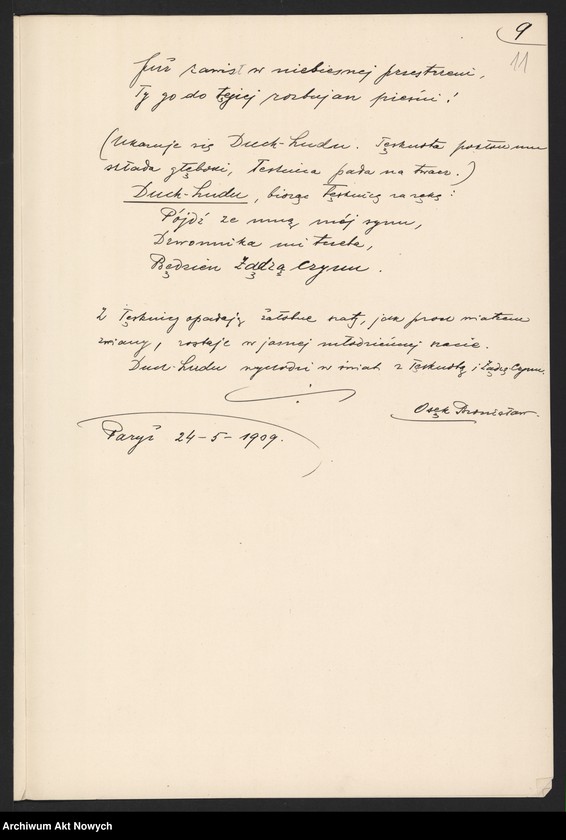 9
11
Już zawisł w niebiesnej przestrzeni,
Ty go do tejiej rozbujan pieśni!
(Ukazuje się Duch-Ludu. Tęsknota pokłon mu
składa głęboki, Tęsknica pada na twarz.)
Duch-Ludu, biorąc Tęsknicę za rękę:
Pójdź ze mną mój synu,
Dzwonnika mi trzeba,
Będzien Żądzą Czynu.
Z Tęsknicy opadają żałobne szaty, jak przed wiatrem
zwiany, zostaje w jasnej młodzieńczej szacie.
Duch-Ludu wychodzi w świat z Tęsknotą i Żądzą Czynu.
Osęk Bronisław.
Paryż 24-5-1909.
Archiwum Akt Nowych